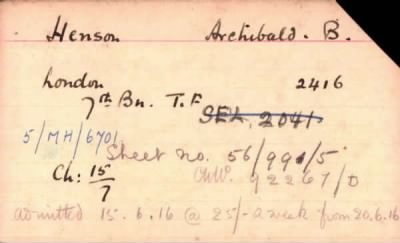 Henson Archibald. B.
London 2416
7th Bn. T.F
SEL, 2041
5/MH/6701
Sheet no. 56/991/5
Ch: 15/7 92267/D
admitted 15.6.16 @ 25/- a week from 20.6.16